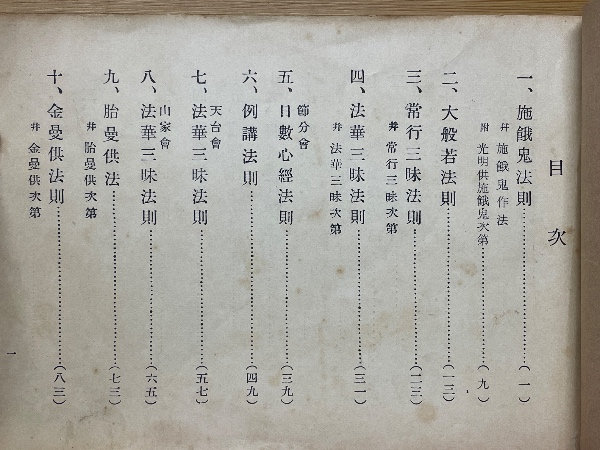 目次
一、施餓鬼法則……………(一)
并 施餓鬼作法
附 光明供施餓鬼次第……………(九)
二、大般若法則……………(一三)
三、常行三昧法則……………(二三)
并 常行三昧次第
四、法華三昧法則……………(三一)
并 法華三昧次第
節分會
五、日數心經法則……………(三九)
六、例講法則……………(四九)
天台會
七、法華三昧法則……………(五七)
山家會
八、法華三昧法則……………(六五)
九、胎曼供法……………(七三)
并 胎曼供次第
十、金曼供法則……………(八三)
并 金曼供次第
一